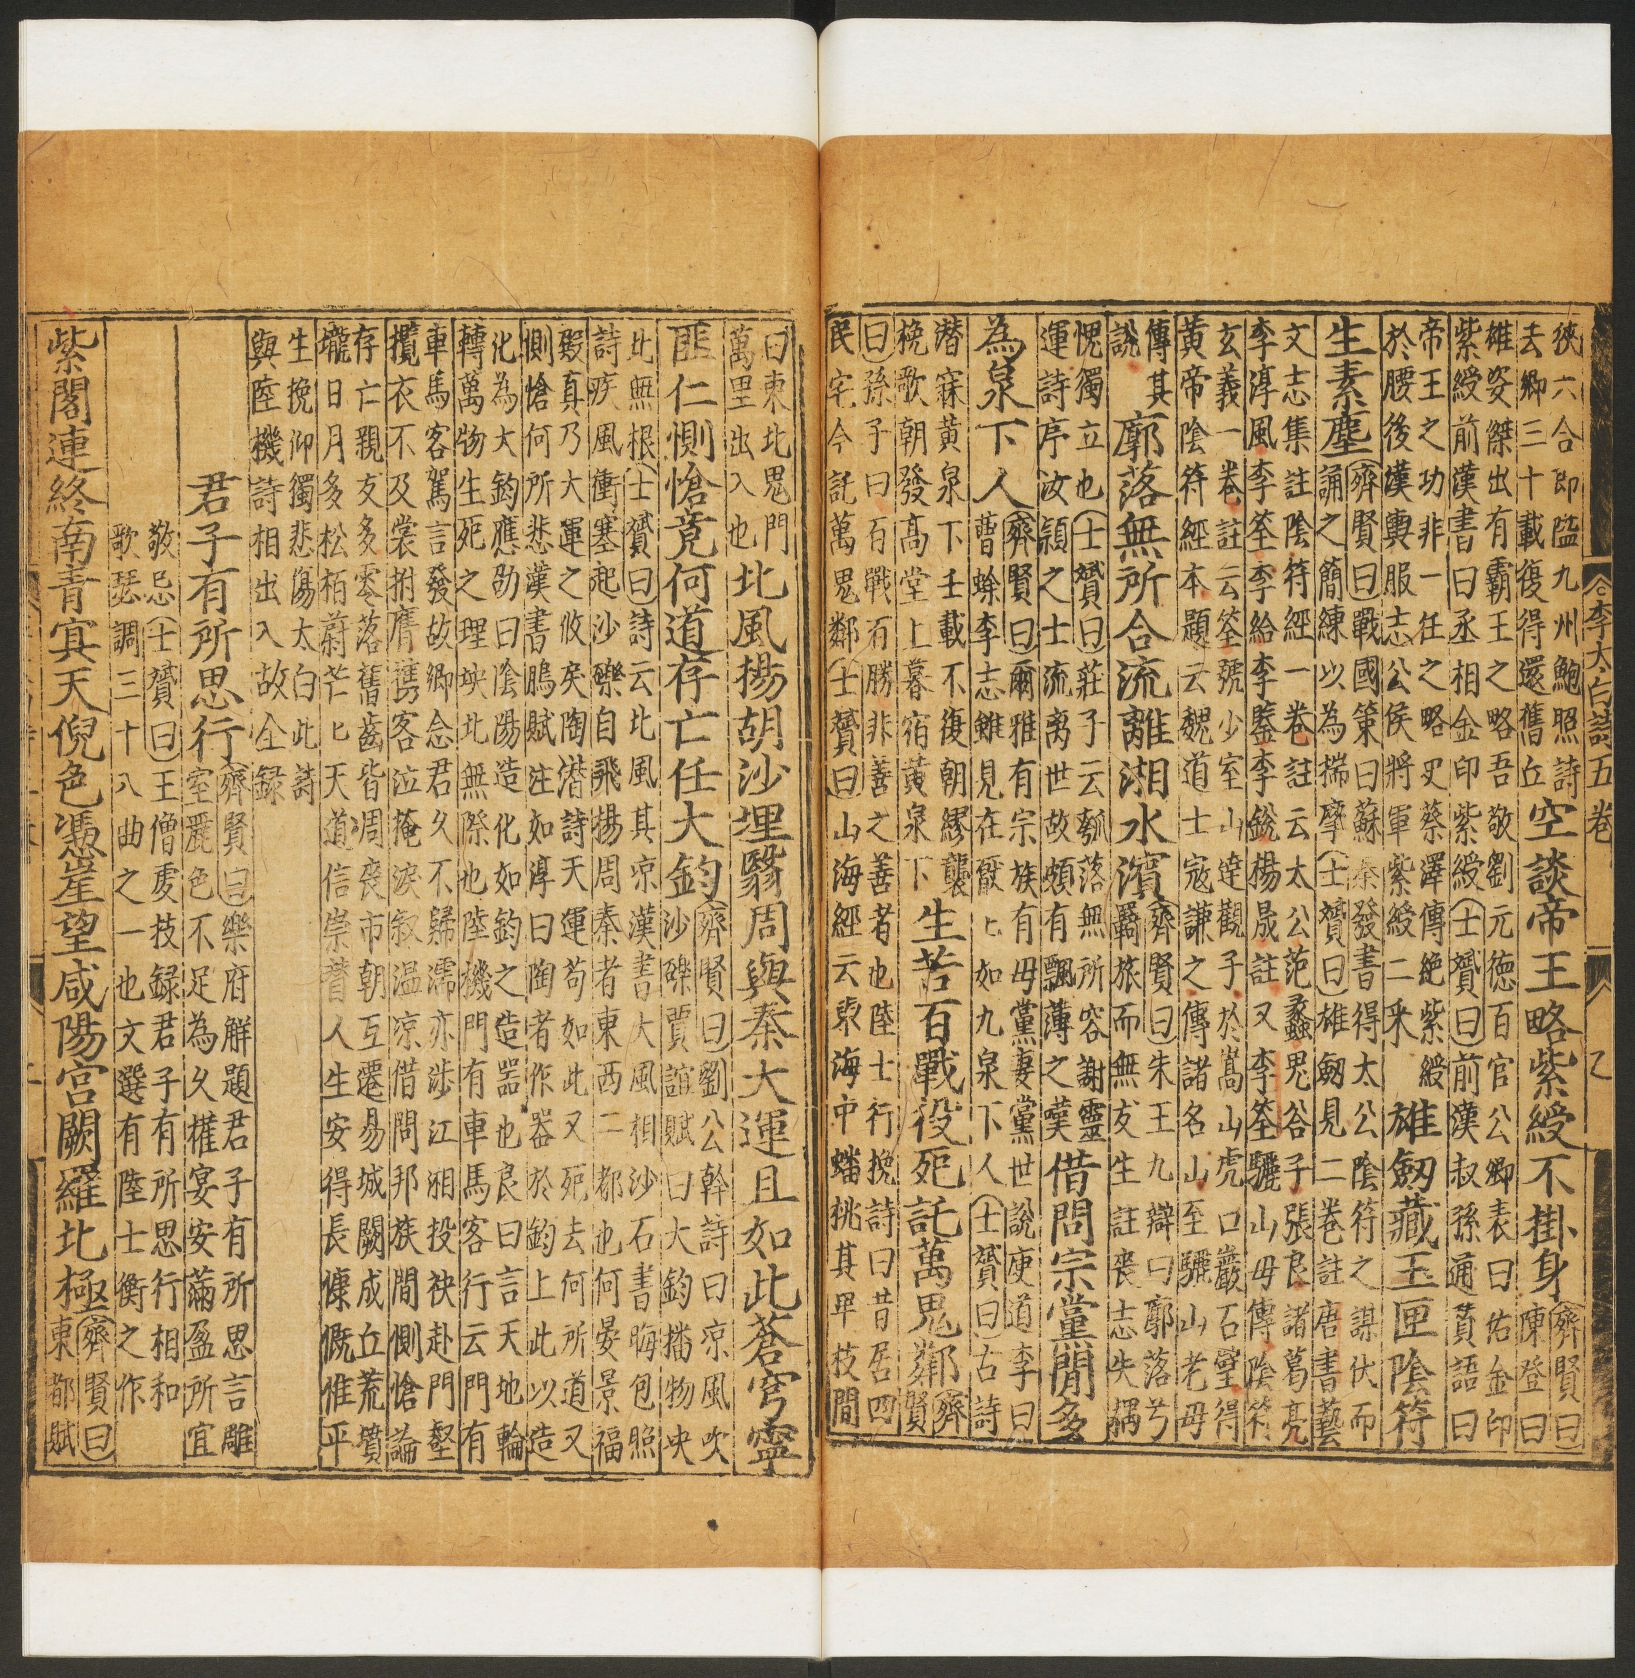 李太白詩五卷 乙
狹六合即隘九州鮑照詩
去鄉三十載復得還舊丘
空談帝王略紫綬不掛身
齊賢曰
陳登曰
雄姿傑出有霸王之略吾敬劉元德百官公卿表曰佑金印
紫綬前漢書曰丞相金印紫綬士贇曰前漢叔孫通賛語曰
帝王之功非一任之略又蔡澤傳絶紫綬
於腰後漢輿服志公侯將軍紫綬二采
雄劔藏玉匣陰符
生素塵
齊賢曰戰國策曰蘇秦發書得太公陰符之謀伏而
誦之簡練以為揣摩士贇曰雄劔見二卷註唐書藝
文志集註陰符經一卷註云太公范蠡鬼谷子張良諸葛亮
李淳風李筌李給李鑒李銳楊晟註又李筌驪山母傳陰符
玄義一卷註云筌號少室山逹觀子於嵩山虎口巖石室得
黄帝陰符經本題云魏道士冦謙之傳諸名山至驪山老母
傳其
說
廓落無所合流離湘水濵
齊賢曰朱王九辯曰廓落兮
羇旅而無友生註喪志失耦
愧獨立也士贇曰莊子云瓠落無所容謝靈
運詩序汝頴之士流离世故頗有飄薄之嘆
借問宗黨間多
為泉下人
齊賢曰爾雅有宗族有母黨妻黨世說庾道李曰
曹蜍李志雖見在厭〻如九泉下人士贇曰古詩
潜寐黄泉下千載不復朝繆襲
挽歌朝發高堂上暮宿黄泉下
生苦百戰役死託萬鬼鄰
齊
賢
曰孫子曰百戰百勝非善之善者也陸士行挽詩曰昔居四
民宅今託萬鬼鄰士贇曰山海經云東海中蟠桃其卑枝間
曰東北鬼門
萬里出入也
北風揚胡沙埋翳周與秦大運且如此蒼穹寧
匪仁惻愴竟何道存亡任大鈞
齊賢曰劉公幹詩曰凉風吹
沙礫賈誼賦曰大鈞播物坱
北無根士贇曰詩云北風其凉漢書大風相沙石書晦包照
詩疾風衝塞起沙礫自飛揚周秦者東西二都也何晏景福
殿真乃大運之攸戾陶潜詩天運苟如此又死去何所道又
惻愴何所悲漢書鵩賦注如淳曰陶者作器於鈞上此以造
化為大鈞應劭曰陰陽造化如鈞之造器也良曰言天地輪
轉萬物生死之理坱北無際也陸機門有車馬客行云門有
車馬客駕言發故鄉念君久不歸濡亦涉江湘投袂赴門壑
攬衣不及裳拊膺携客泣掩淚叙温凉借問邦族間惻愴論
存亡親友多零落舊齒皆凋喪市朝互遷易城闕成丘荒墳
壠日月多松栢蔚芒〻天道信崇替人生安得長慷慨惟平
生挽仰獨悲傷太白此詩
與陸機詩相出入故全録
君子有所思行
齊賢曰樂府解題君子有所思言雕
室麗色不足為久懽宴安滿盈所宜
敬忌士贇曰王僧虔技録君子有所思行相和
歌瑟調三十八曲之一也文選有陸士衡之作
紫閣連終南青冥天倪色憑崖望咸陽宮闕羅北極
齊賢曰
東都賦